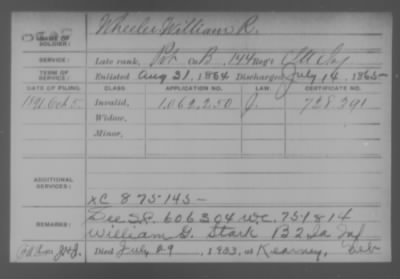 NAME OF SOLDIER: Wheeler William R.
SERVICE: Late rank, Pvt. Co. B, 144 Reg't Ill Inf
TERM OF SERVICE: Enlisted Aug 31, 1864 Discharged July 14, 1865
DATE OF FILING. CLASS. APPLICATION NO. LAW. CERTIFICATE NO.
1891 Oct 5 Invalid, 1,062,250 J. 728,391
Widow,
Minor,
ADDITIONAL SERVICES:
XC 875145-
REMARKS: See S.P. 606304 W.C. 751814
William G. Stark B 2 Ia Inf
Died July 29, 1933, at Kearney, Neb